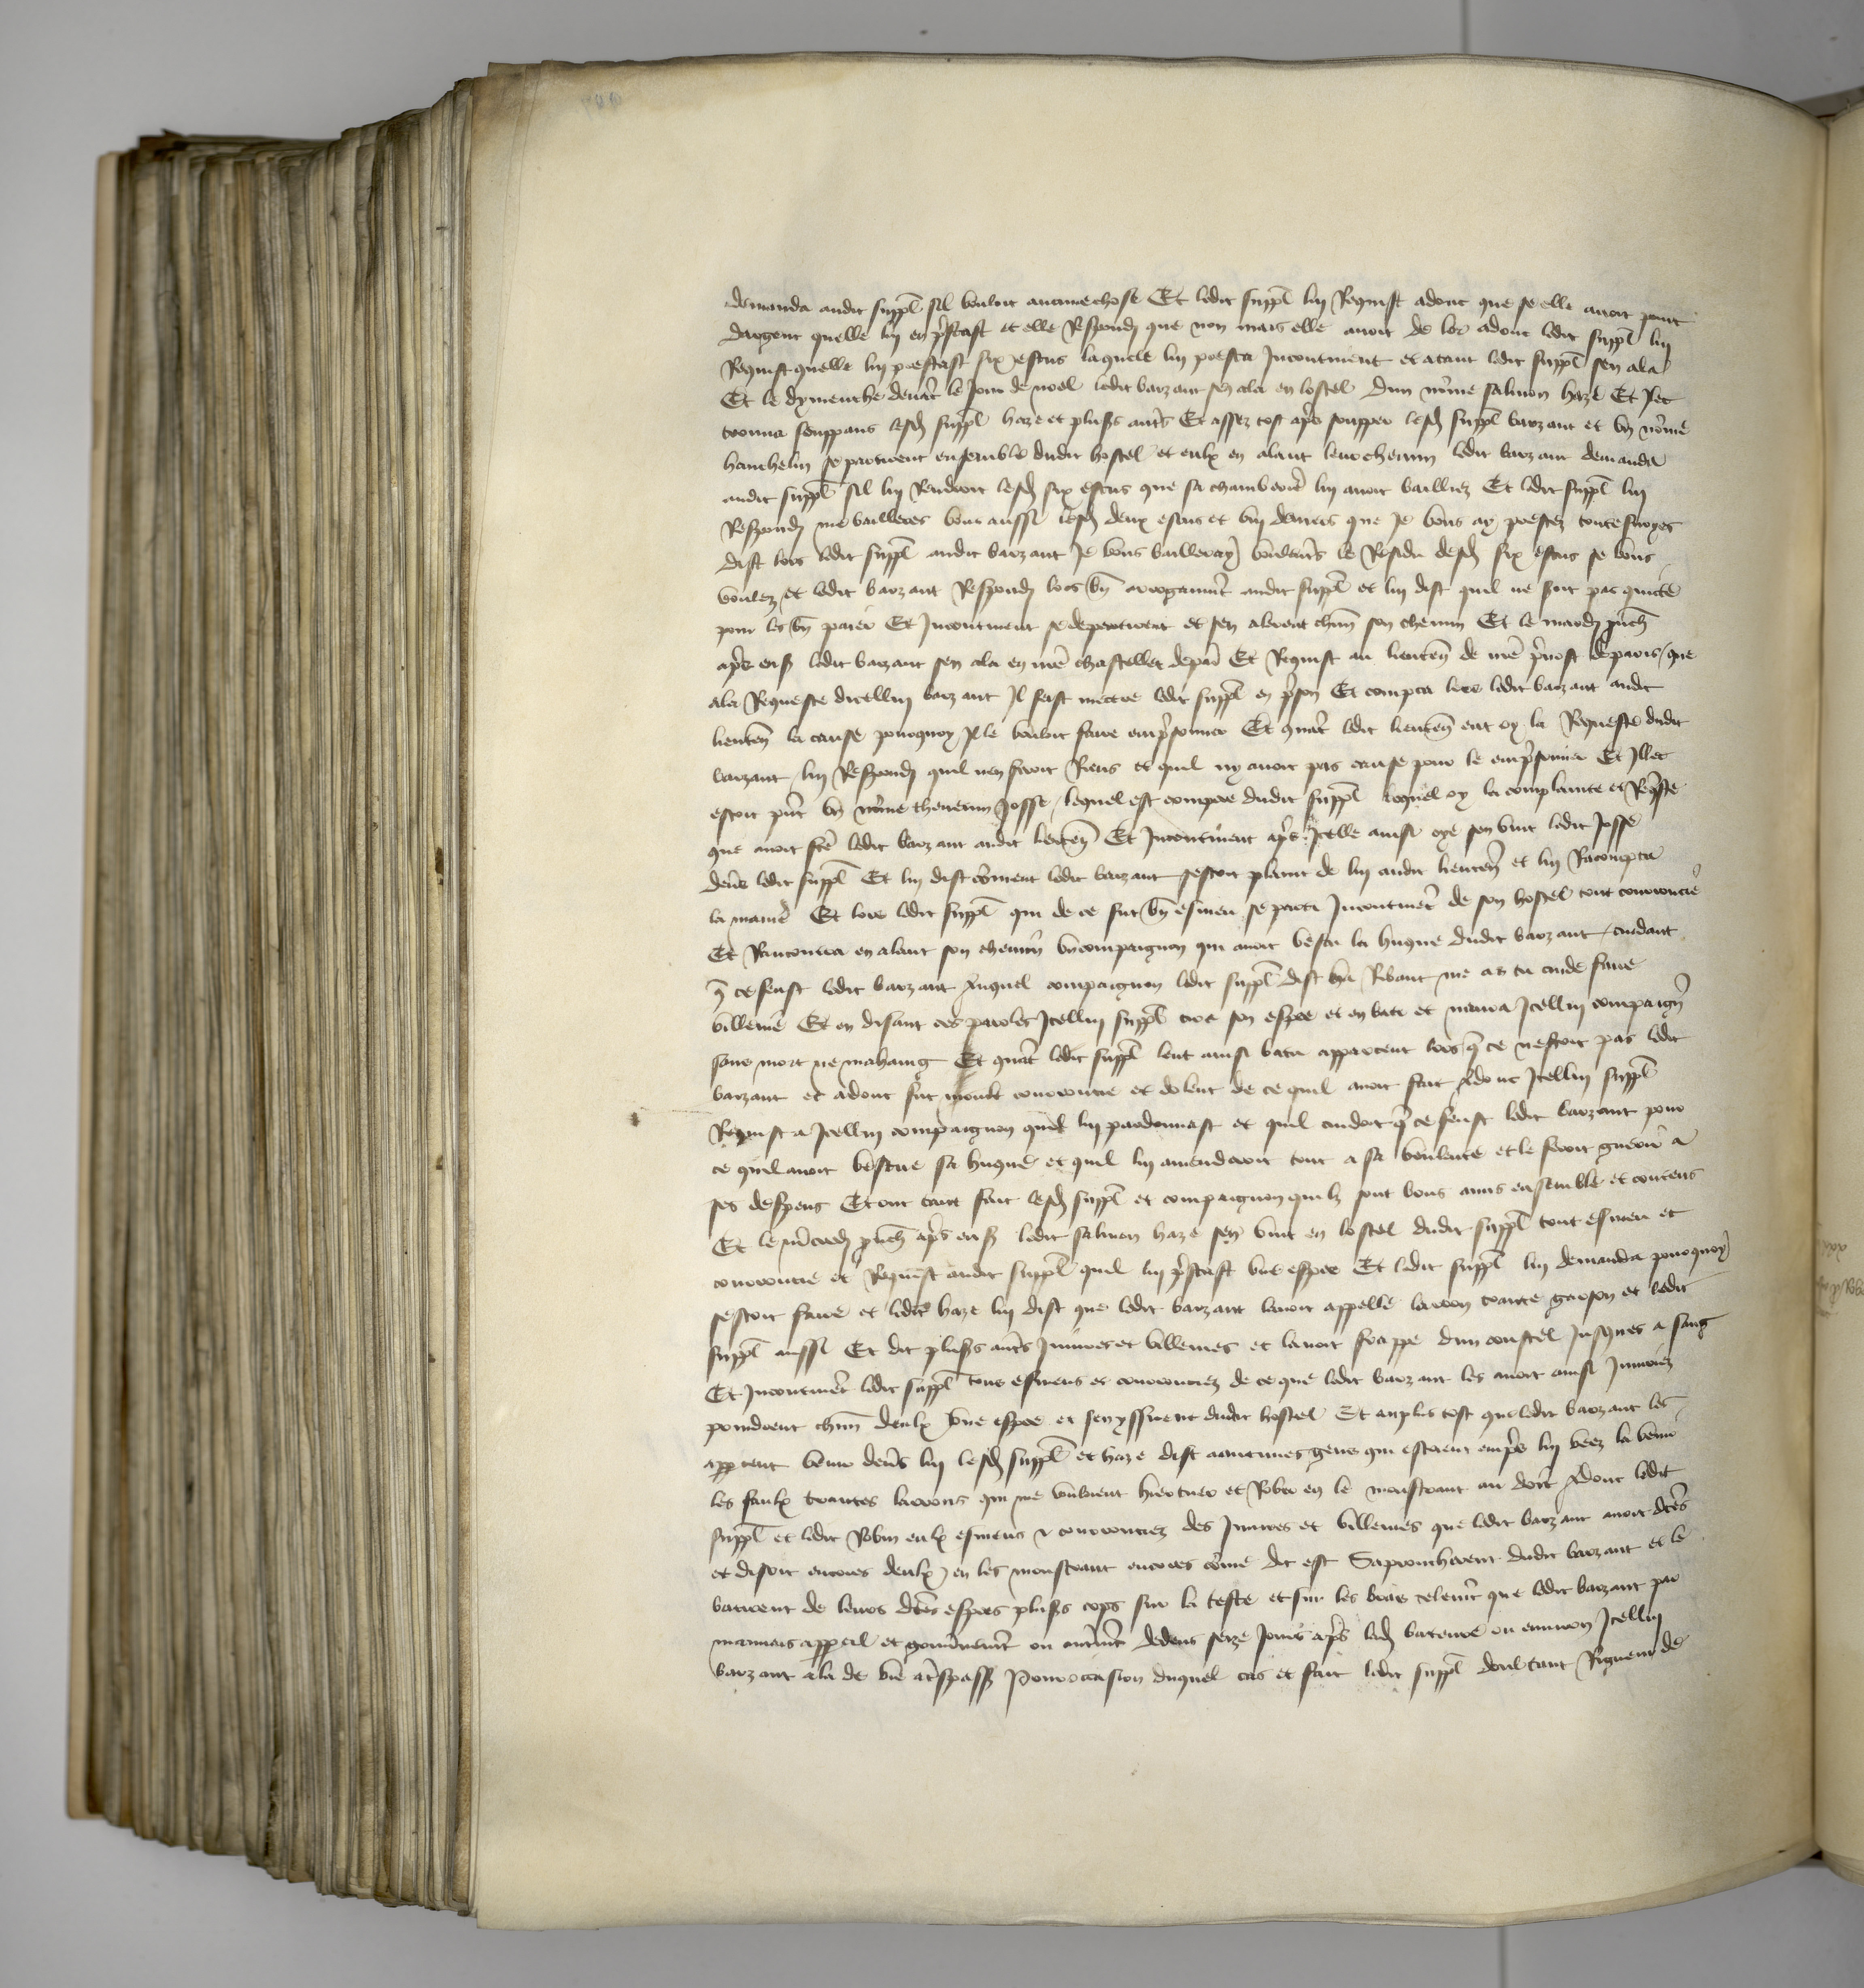 demanda audit suppl sil vouloit aucune chose Et ledit suppl luy Requist adont que se elle auoit point
dargent quelle luy en prestast et elle Respondy que non mais elle auoit de lor adont ledit suppl luy
Requist quelle luy prestast six escus laquele luy presta Incontinent et atant ledit suppl sen ala
Et le dymenche deuant le jour de noel ledit barzant sen ala en lostel dun nomme salmon haze Et Ilec
trouua souppans lesd suppl haze et pluss autres Et assez tost apres soupper lesd suppl barzant et vn nomme
hanchelin se partirent ensemble dudit hostel et eulx en alant leur chemin ledit barzant demanda
audit suppl sil luy Rendroit lesd six escus que sa chamberiere luy auoit bailliez Et ledit suppl luy
Respondy me baillerez vous aussi lesd deux escus et viij deniers que Je vous ay prestez toutesuoyes
dist lors ledit suppl audit barzant Je vous bailleray voulentiers le Residu desd six escus se vous
voulez et ledit barzant Respondy lors bn arrogamment audit suppl et luy dist quil ne seroit pas quicte
pour les bn paier Et Incontinent se departirent et sen alerent chun son chemin Et le mardy prouch
apres enss ledit barzant sen ala en nre chastellet de paris Et Requist au lieuten de nre preuost de paris que
ala Requeste dicelluy barzant Il feist mectre ledit suppl en prison Et compta lors ledit barzant audit
lieuten la cause pourquoy Il le vouloit faire emprisonner Et quant ledit lieuten eut oy la Requeste dudit
barzant luy Respondy quil nen feroit Riens et quil ny auoit pas cause pour le emprisonner Et Illec
estoit present vn nomme theuenin Josse lequel est compere dudit suppl lequel oy la complainte et Requeste
que auoit fte ledit barzant audit lieuten Et Incontinent apres Icelle ainsi oye sen vint ledit Josse
deuers ledit suppl Et luy dist coment ledit barzant sestoit plaint de luy audit lieuten et luy Racompta
la maniere Et lors ledit suppl qui de ce fut bn esmeu se parti Incontinent de son hostel tout courroucie
Et Rancontra en alant son chemin vn compaignon qui auoit vestu la huque dudit barzant cuidant
q ce feust ledit barzant Auquel compaignon ledit suppl dist ha Ribaut me as tu cuide faire
villenie Et en disant ces paroles Icelluy suppl tira son espee et en bati et naura Icelluy compaign
sans mort ne mahaing Et quant ledit suppl leut ainsi batu apparceut lors q ce nestoit pas ledit
barzant et adont fut moult courroucie et dolent de ce quil auoit fait Adonc Icelluy suppl
Requist a Icelluy compaignon quil luy pardonnast et quil cuidoit q ce feust ledit barzant pour
ce quil auoit vestue sa huque et quil luy amenderoit tout a sa voulente et le feroit guerir a
ses despens Et ont tant fait lesd suppl et compaignon quilz sont bons amis ensemble et contens
Et le mercredy prouch apres enss ledit salmon haze sen vint en lostel dudit suppl tout esmeu et
courroucie et Requist audit suppl quil luy prestast vne espee Et ledit suppl luy demanda pourquoy
cestoit faire et ledit haze luy dist que ledit barzant lauoit appelle larron traitre garson et ledit
suppl aussi Et dit pluss autres Iniures et villenies et lauoit frappe dun coustel Jusques a sang
Et Incontinent ledit suppl tous esmeus et courrouciez de ce que ledit barzant les auoit ainsi Iniuriez
prindrent chun deulx vne espee et sen yssirent dudit hostel Et au plus tost que ledit barzant les
apparceut venir deuers luy lesd suppl et haze dist a aucunes gens qui estoient empres luy veez la venir
les faulx traitres larrons qui me vouloient hier tuer et Rober en le monstrant au doit Adonc ledit
suppl et ledit Robin eulx esmeus & courrouciez des Iniures et villenies que ledit barzant auoit dctes
et disoit encores deulx en les monstrant encores come dit est Saprouchierent dudit barzant et le
batirent de leurs dctes espees pluss cops sur la teste et sur les bras telement que ledit barzant par
mauuais appareil et gouuernement ou autrement dedens seize Jours apres lad bateure ou enuiron Icelluy
barzant ala de vie a trespasst Pour occasion duquel cas et fait ledit suppl doubtant Rigueur de